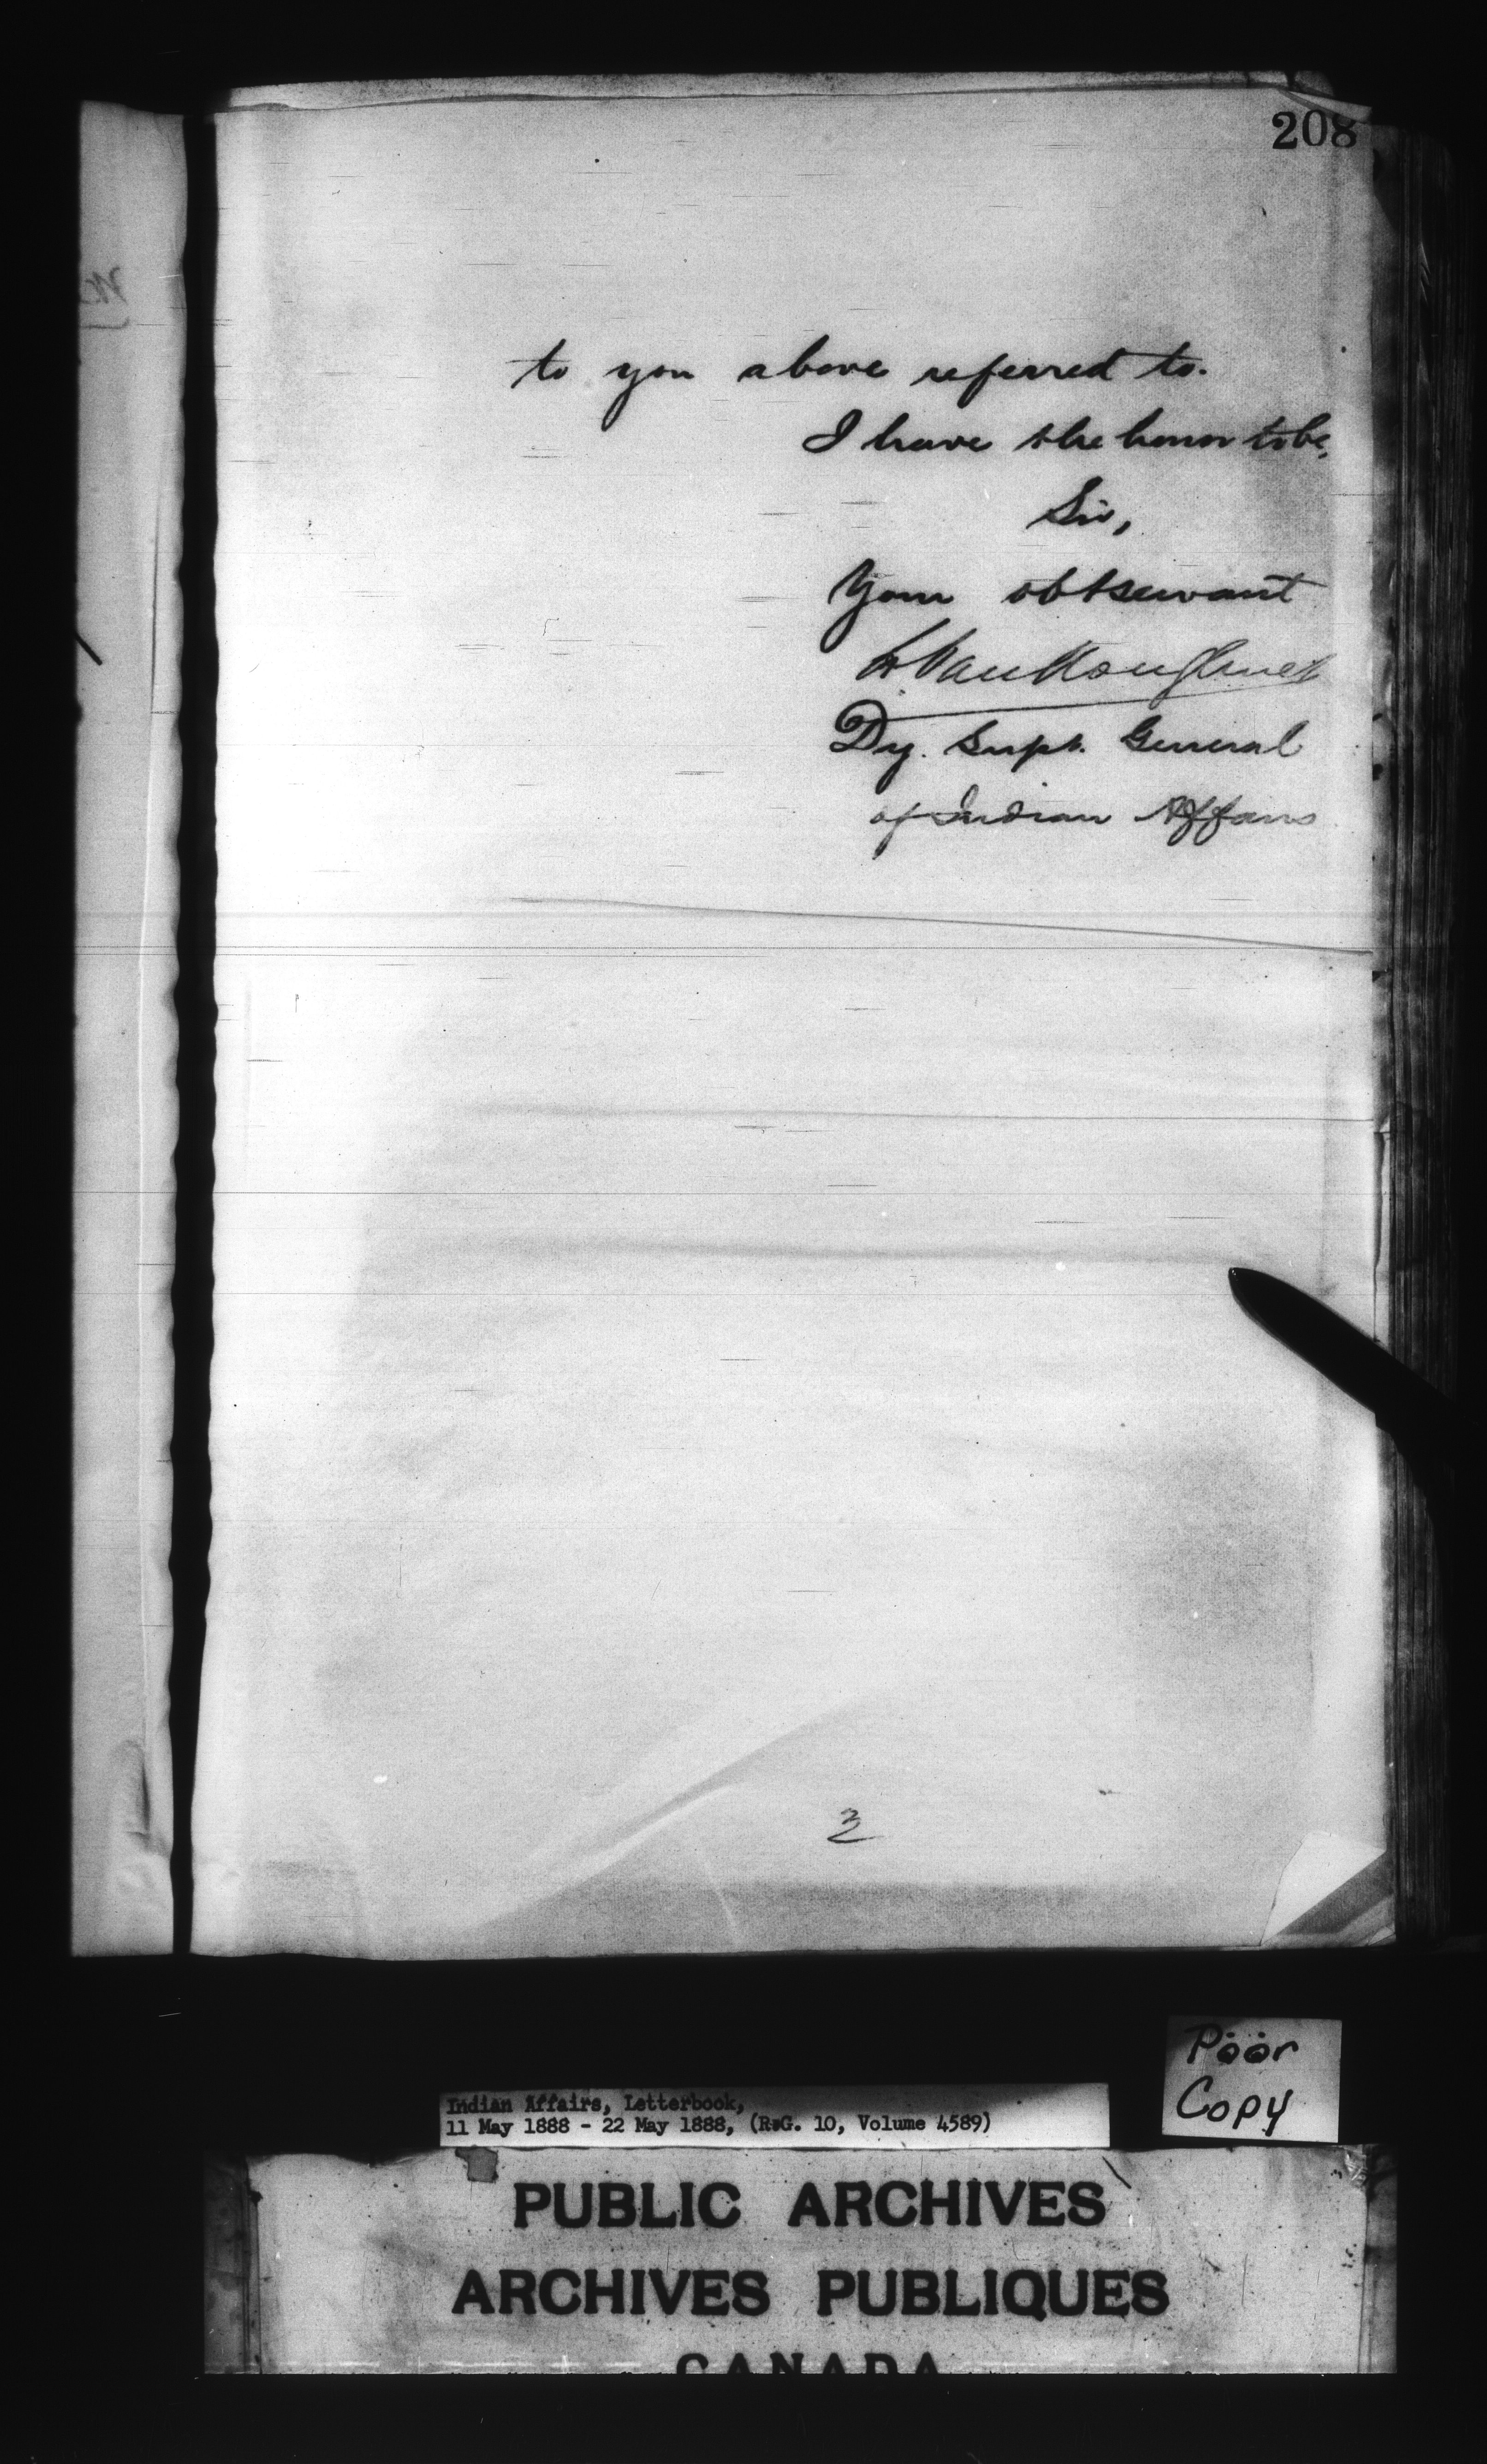 208
to you above referred to.
I have the honor to be,
Sir,
Your obt servant
L. Vankoughnet
Dy. Supt. General
of Indian Affairs
2
Poor
Copy
Indian Affairs, Letterbook,
11 May 1888 - 22 May 1888, (R.G. 10, Volume 4589)
PUBLIC ARCHIVES
ARCHIVES PUBLIQUES
CANADA